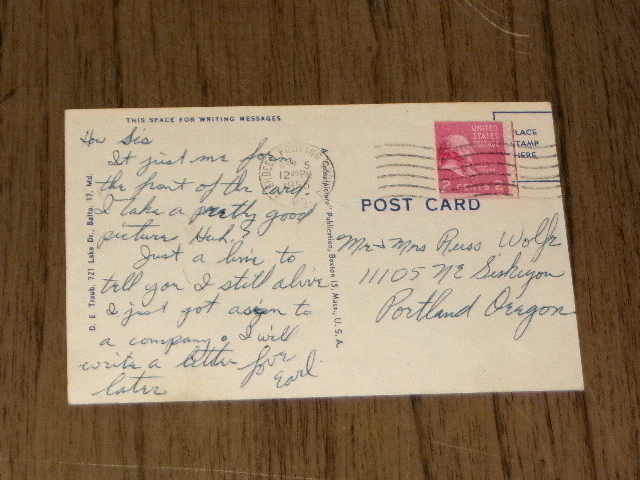 THIS SPACE FOR WRITING MESSAGES
How Sis
It just me form
the front of the card.
I take a pretty good
picture Huh?
Just a line to
tell you I still alive
I just got asign to
a company. I will
write a letter
later
Love
Earl.
D. E. Traub, 721 Lake Dr., Balto. 17, Md.
A "Colourpicture" Publication, Boston 15, Mass., U. S. A.
PROVING
5
12 PM
UNITED
STATES
POSTAGE
2 CENTS 2
LACE
TAMP
HERE
POST CARD
Mr & Mrs Russ Wolfe
11105 NE Siskiyou
Portland Oregon